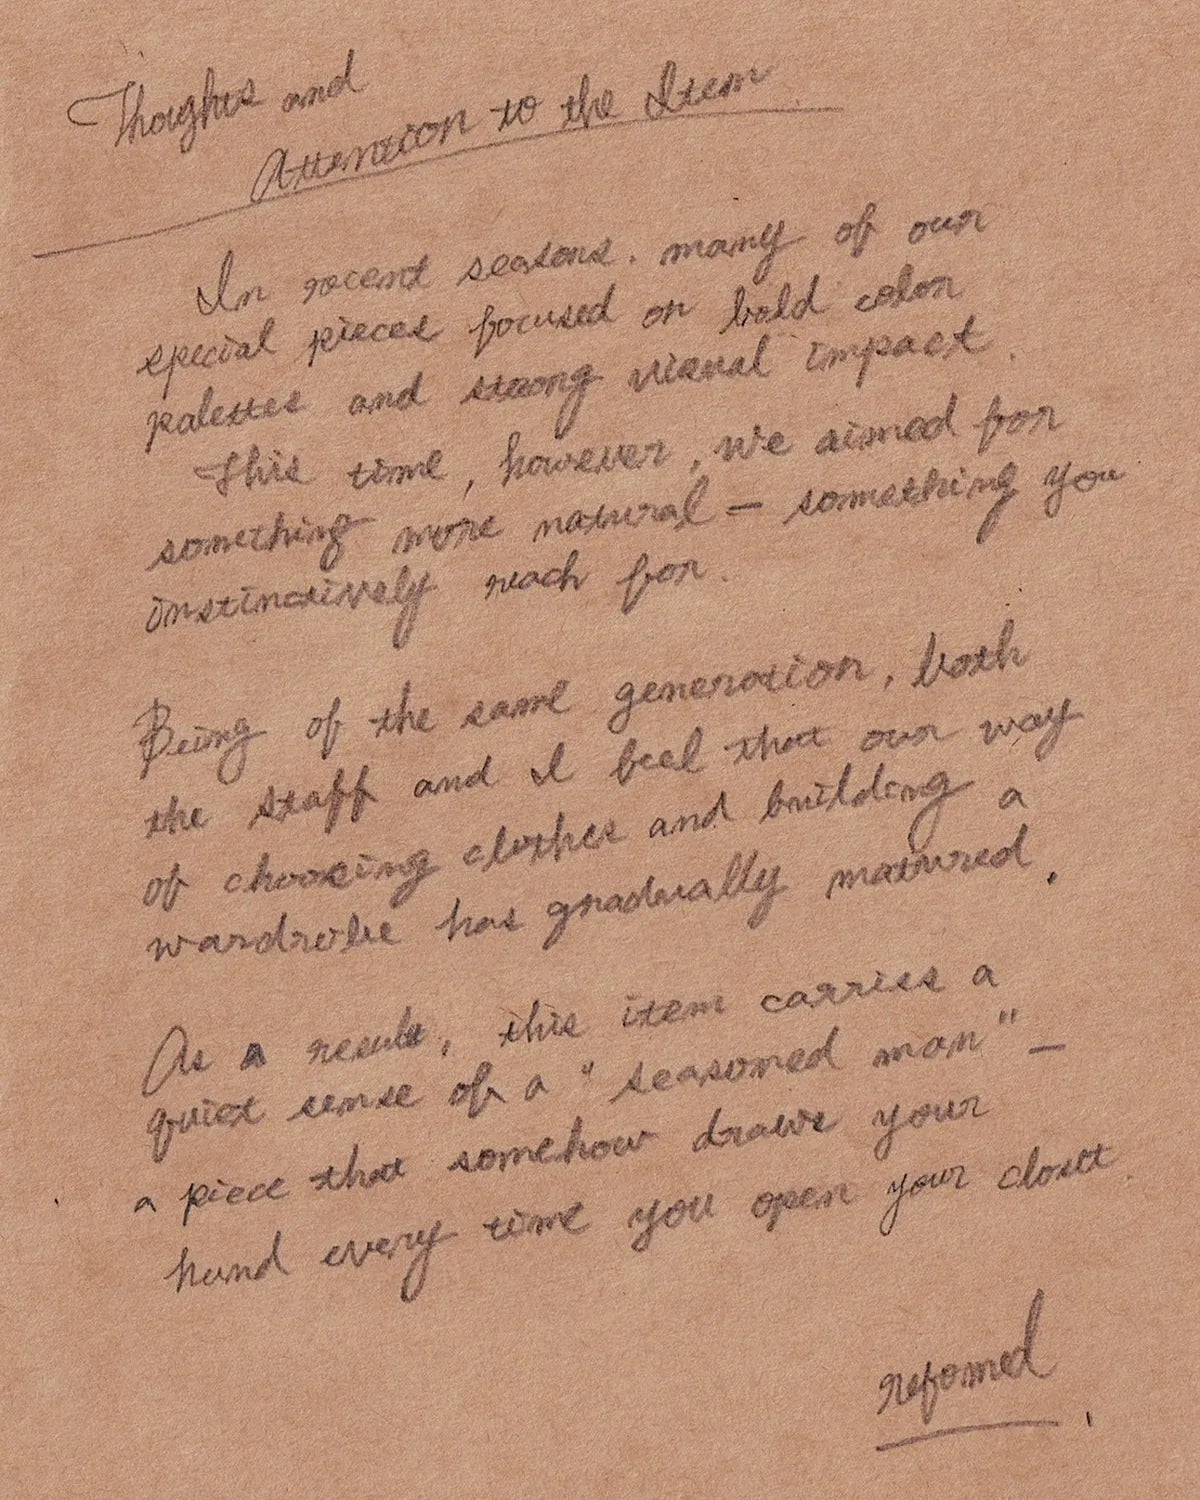 Thoughts and
Attention to the Item
In recent seasons. many of our
special pieces focused on bold color
palettes and strong visual impact.
This time, however, we aimed for
something more natural — something you
instinctively reach for.
Being of the same generation, both
the staff and I feel that our way
of choosing clothes and building a
wardrobe has gradually matured.
As a result, this item carries a
quiet sense of a "seasoned man" —
a piece that somehow draws your
hand every time you open your closet.
refomed